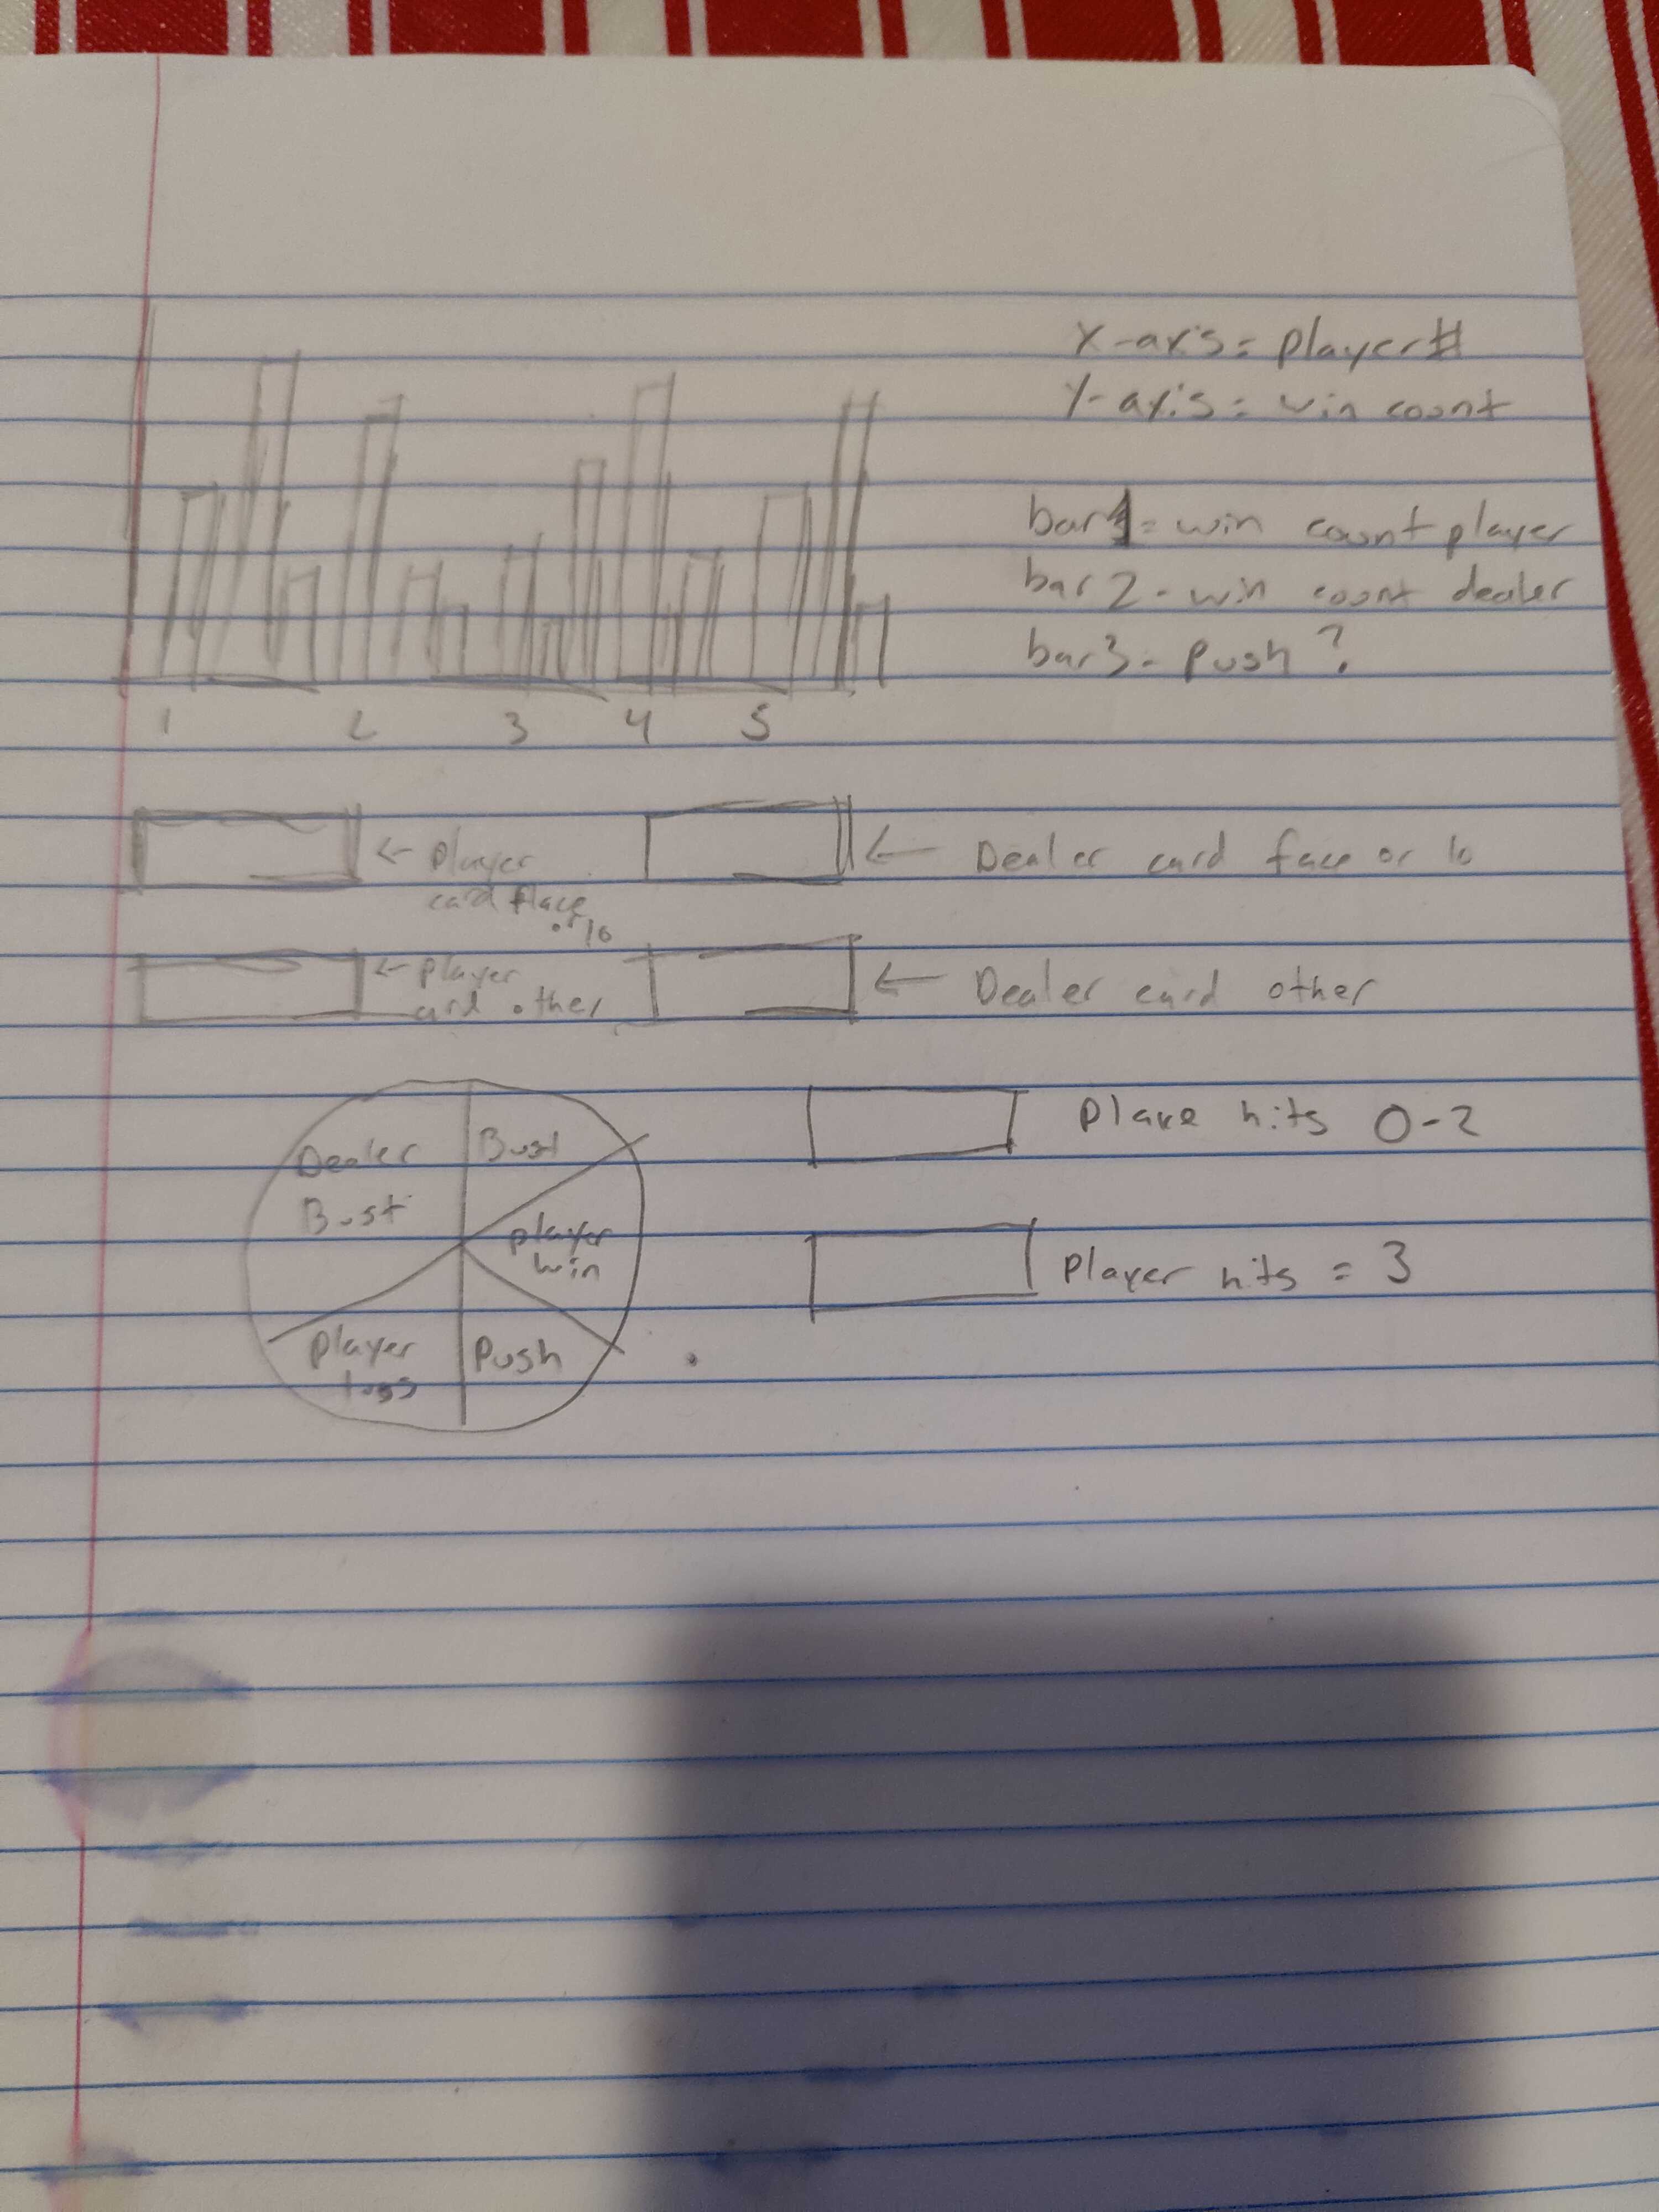 x-axis = player#
y-axis = win count
bar1 = win count player
bar2 - win count dealer
bar3 - push?
1 2 3 4 5
← player
card face
or 10
← Dealer card face or 10
← player
card other
← Dealer card other
Dealer
Bust
Bust
player
win
player
loss
Push
Playe hits 0-2
Player hits = 3